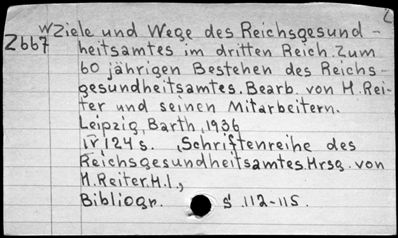 2
WZiele und Wege des Reichsgesund-
Z667 heitsamtes im dritten Reich. Zum
60 jährigen Bestehen des Reichs-
gesundheitsamtes. Bearb. von H. Rei-
ter und seinen Mitarbeitern.
Leipzig, Barth, 1936
IV 124 s. Schriftenreihe des
Reichsgesundheitsamtes. Hrsg. von
H. Reiter. H. 1.,
Bibliogr. S. 112-115.